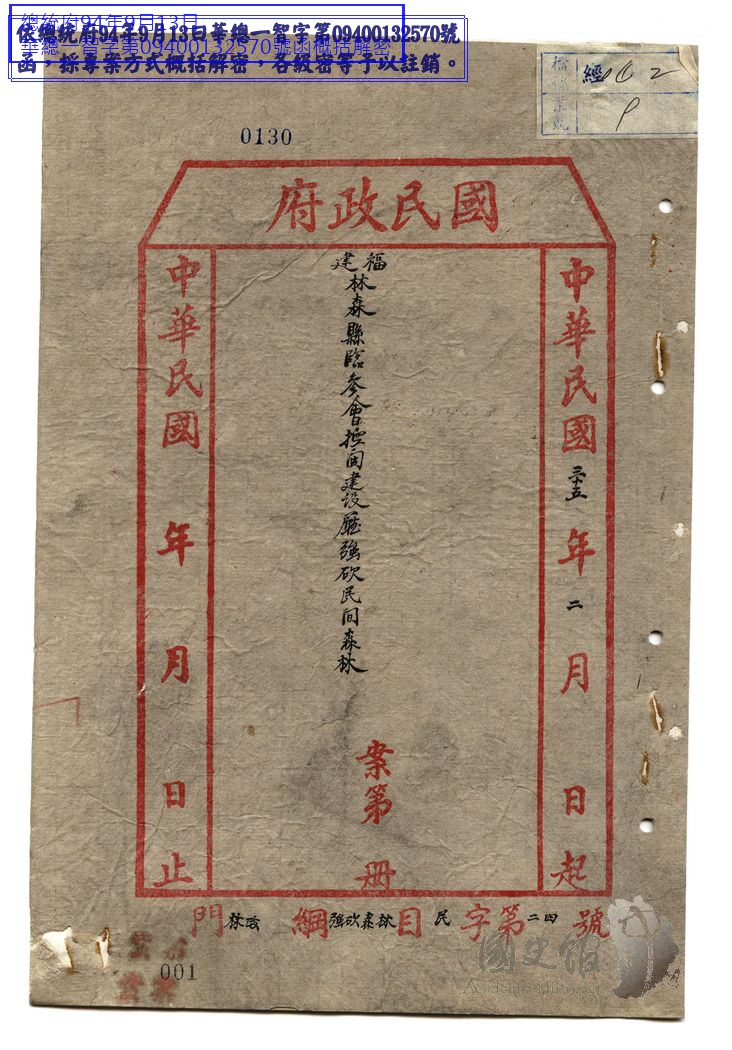 總統府94年9月13日
華總一智字第09400132570號函概括解密
依總統府94年9月13日華總一智字第09400132570號
函，採專案方式概括解密，各級密等予以註銷。
經
0130
府政民國
中華民國三十五年二月日起
福建林森縣臨參會控閩建設廳強砍民間森林
案第冊
中華民國年月日止
門林政綱強砍森林目民字第二四號
國史館
001